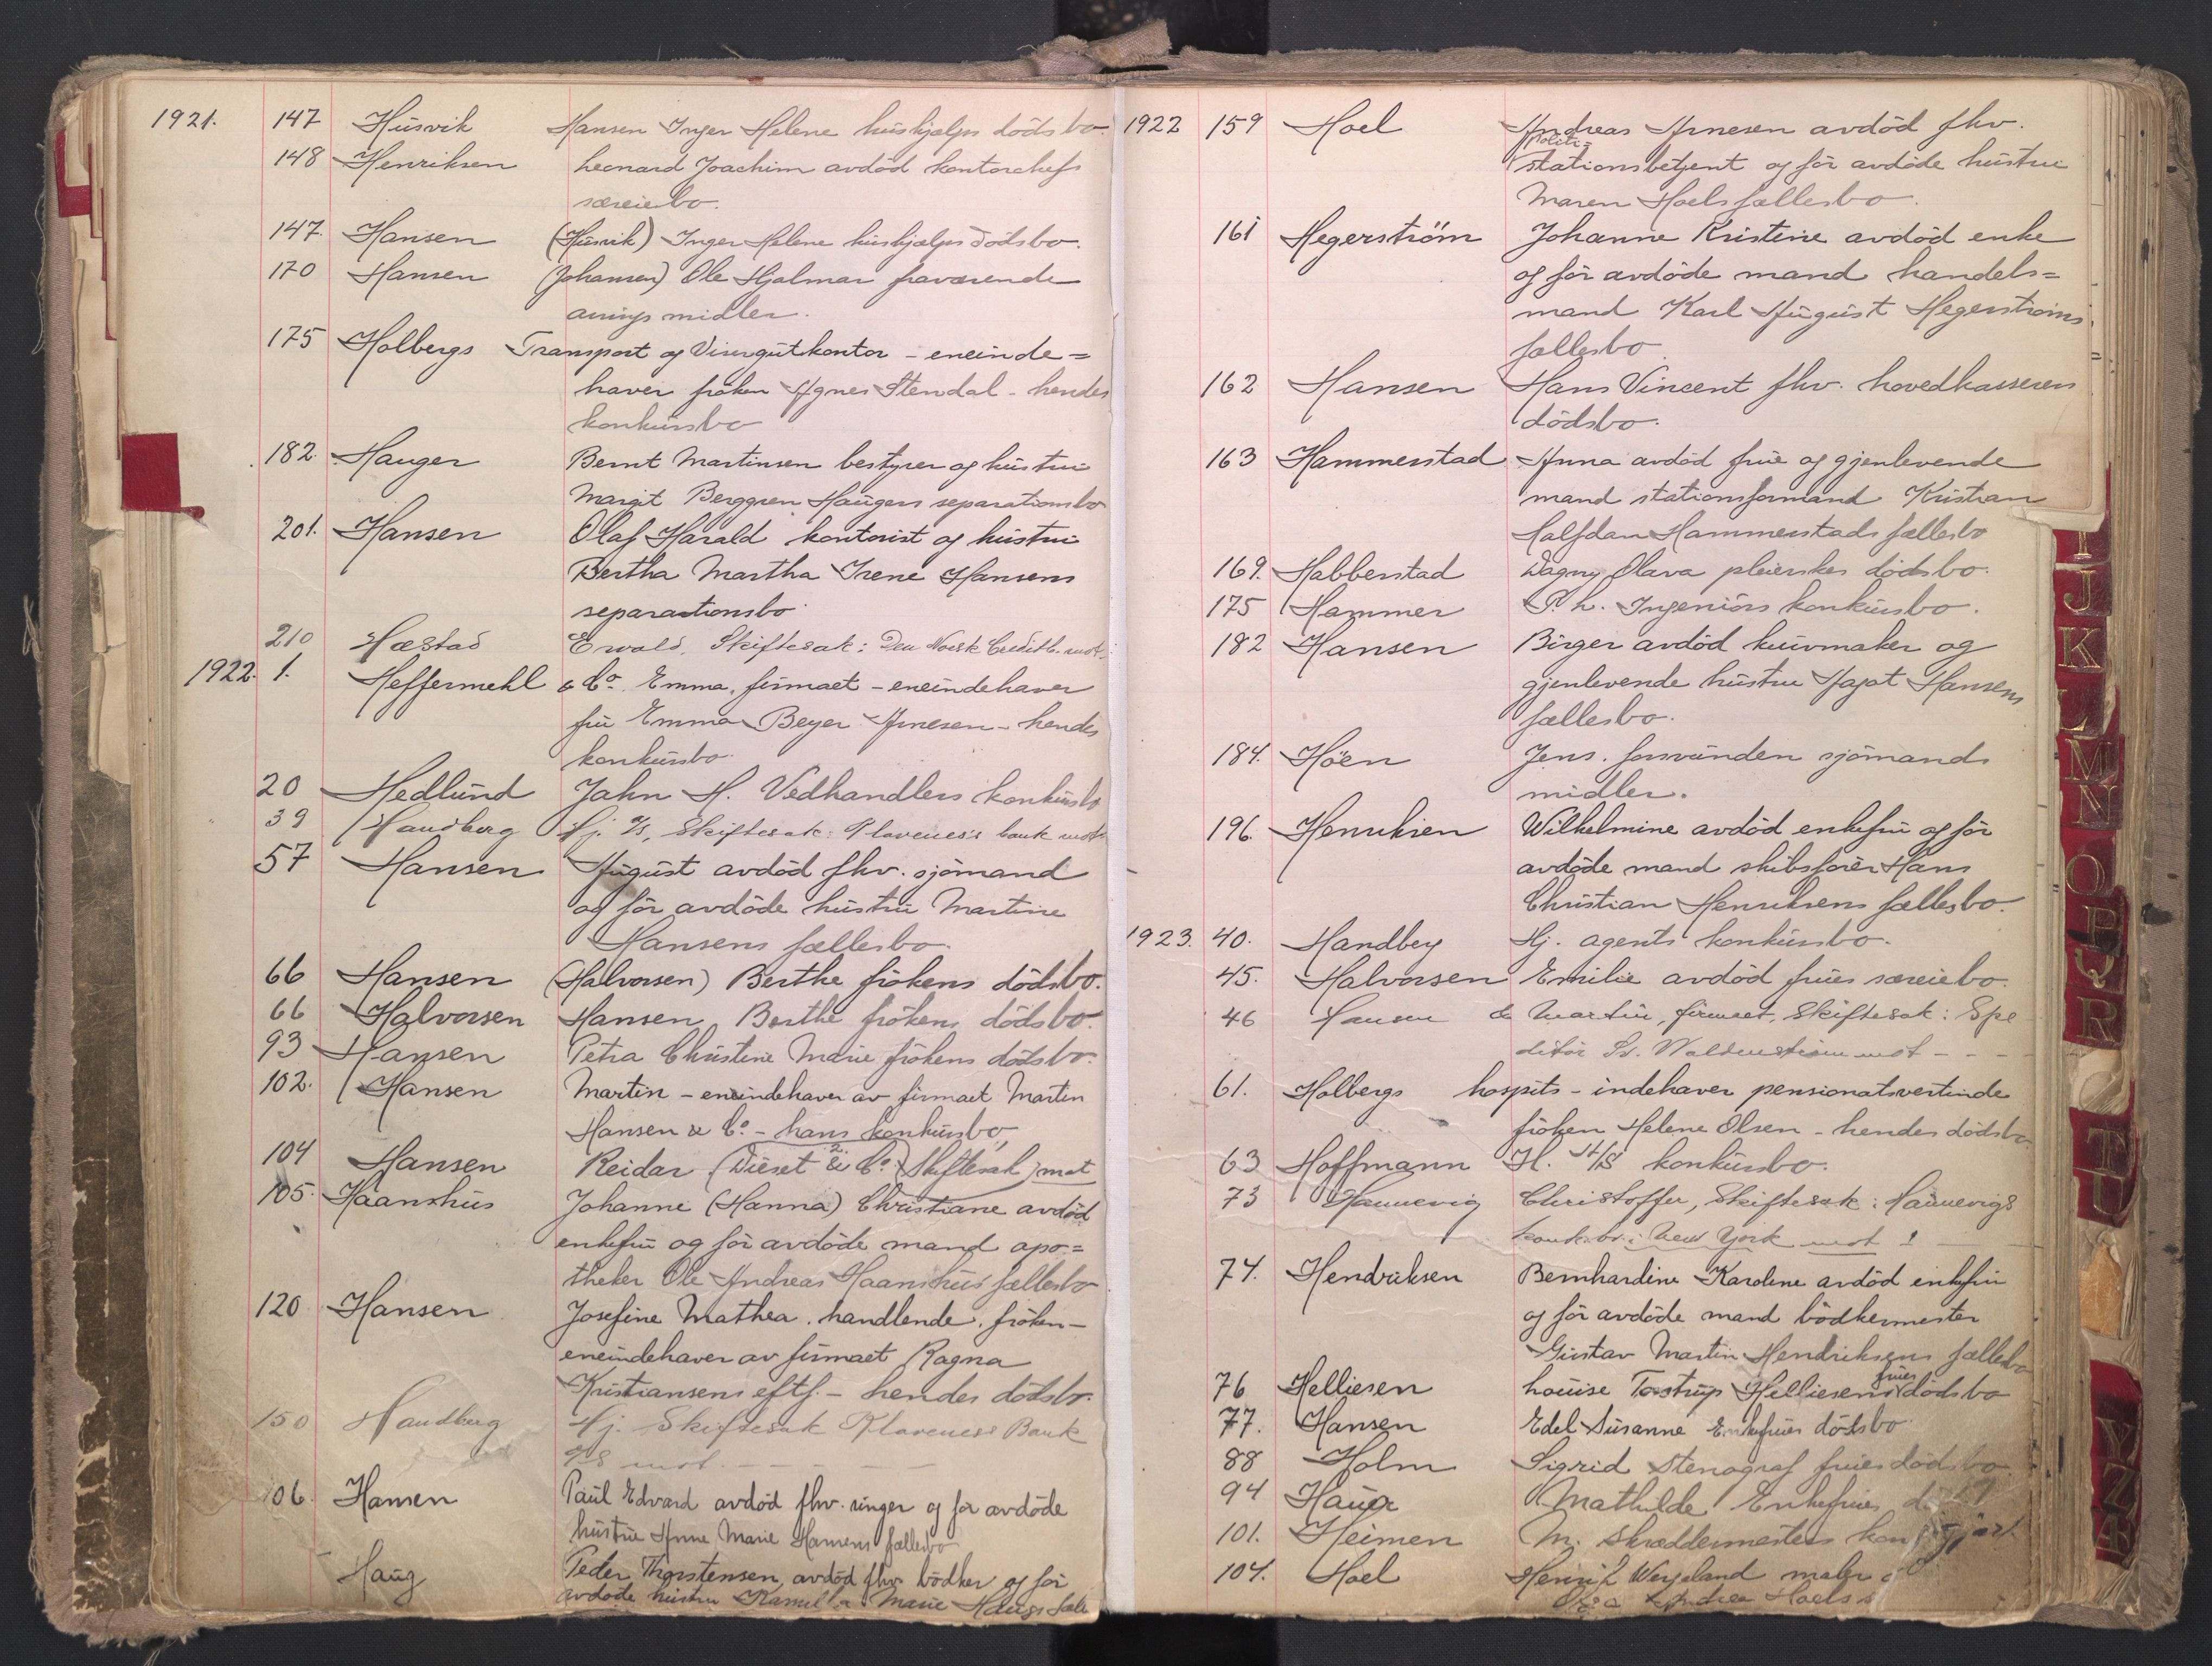 1921. 147 Husvik Hansen Inger Helene hushjælps dödsbo
148 Henriksen Leonard Joachim avdöd kontorchefs
særeiebo.
147. Hansen (Husvik) Inger Helene hushjælps dödsbo.
170 Hansen (Johansen) Ole Hjalmar fraværende
arvings midler.
175 Holbergs Transport og Visergutkontor - eneinde=
haver fröken Agnes Stendal - hendes
konkursbo
182. Hauger Bernt Martinsen bestyrer og hustru
Margit Berggren Haugers separationsbo
201. Hansen Olaf Harald kontorist og hustru
Bertha Martha Irene Hansens
separationsbo
210 Hæstad Ewald, Skiftesak: Den Norsk Creditb. mot
1922. 1. Heffermehl & Co. Emma, firmaet - eneindehaver
fru Emma Beyer Arnesen - hendes
konkursbo
20 Hedlund Jahn H. Vedhandlers konkursbo
39 Handberg Hj. A/S, Skiftesak: Klaveness bank mot
57 Hansen August avdöd fhv. sjömand
og för avdöde hustru Martine
Hansens fællesbo.
66 Hansen (Halvorsen) Berthe frökens dödsbo.
66 Halvorsen Hansen, Berthe frökens dödsbo.
93 Hansen Petra Christine Marie frökens dödsbo.
102. Hansen Martin - eneindehaver av firmaet Martin
Hansen & Co. - hans konkursbo
104 Hansen Reidar (Dieset & Co.) Skiftesak mot
105. Haanshus Johanne (Hanna) Christiane avdöd
enkefru og för avdöde mand apo=
theker Ole Andreas Haanshus fællesbo
120 Hansen Josefine Mathea. handlende, fröken -
eneindehaver av firmaet Ragna
Kristiansens eftf. - hendes dödsbo.
150 Handberg Hj. Skiftesak Klaveness Bank
A/S mot - - -
106. Hansen Paul Edvard avdöd fhv. ringer og for avdöde
hustru Anne Marie Hansens fællesbo
Haug Peder Thorstensen avdöd fhv bödker og for
avdöde hustru Marie Haugs fælle
1922 159 Hoel Andreas Arnesen avdöd fhv.
Politi-
stationsbetjent og för avdöde hustru
Maren Hoels fællesbo.
161 Hegerström Johanne Kristine avdöd enke
og för avdöde mand handels=
mand Karl August Hegerströms
fællesbo
162 Hansen Hans Vincent fhv. hovedkasserers
dödsbo.
163 Hammerstad Anna avdöd frue og gjenlevende
mand stationsformand Kristian
Halfdan Hammerstads fællesbo
169. Habberstad Dagny Olava pleierskes dödsbo.
175 Hammer P. L. Ingeniörs konkursbo.
182 Hansen Birger avdöd kurvmaker og
gjenlevende hustru Hansens
fællesbo.
184. Höen Jens. forsvunden sjömands
midler.
196. Henriksen Wilhelmine avdöd enkefru og för
avdöde mand skibsförer Hans
Christian Henriksens fællesbo.
1923. 40. Handbey Hj. agents konkursbo.
45. Halvorsen Emilie avdöd frues særeiebo.
46 Hansen & Martin, firmaet, Skiftesak: Spe
ditör Waldenström mot - - -
61. Holbergs hospits - indehaver pensionatsvertinde
fröken Helene Olsen - hendes dödsbo
63 Hoffmann H. A/S konkursbo.
73 Hannevig Christoffer, Skiftesak: Hannevigs
konk.bo i New York mot
74. Hendriksen Bernhardine Karoline avdöd enkefru
og för avdöde mand bödkermester
Gustav Martin Hendriksens fællesbo
76 Helliesen Louise Tostrup Helliesens frues dödsbo
77. Hansen Edel Susanne Enkefrues dödsbo
88 Holm Sigrid Stenograf frues dödsbo
94 Hauer Mathilde Enkefrues
101. Heimen M. Skræddermesters
104. Hoel Henrik Wergeland maler
Hoels
I
J
K
L
M
N
O
P
Q
R
T
U
Y
Z
Æ